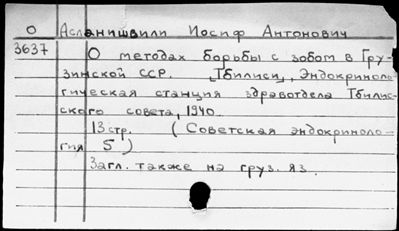 О Асланишвили Иосиф Антонович
3637 О методах борьбы с зобом в Гру-
зинской ССР. [Тбилиси], Эндокриноло-
гическая станция здравотдела Тбилис-
ского совета, 1940.
13 стр. (Советская эндокриноло-
гия 5)
Загл. также на груз. яз.